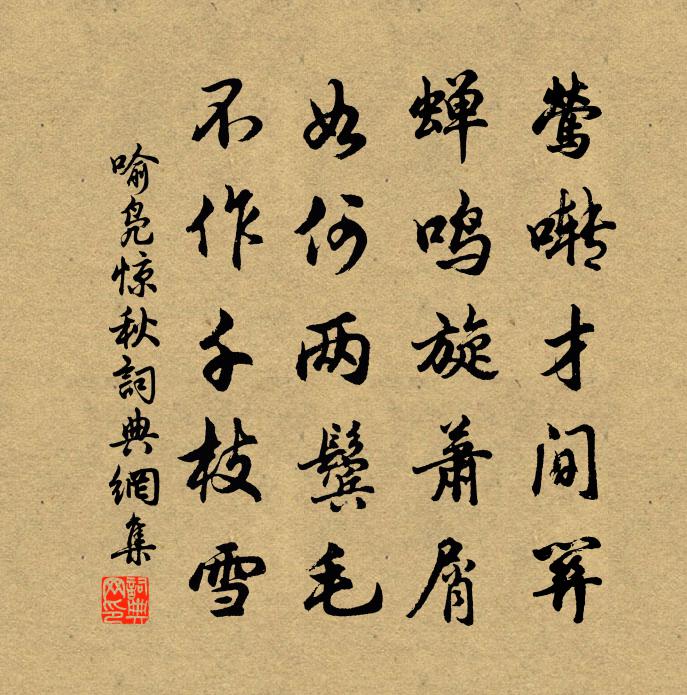 莺啭才间关
蝉鸣旋萧屑
如何两鬓毛
不作千枝雪
喻凫惊秋詞典網集